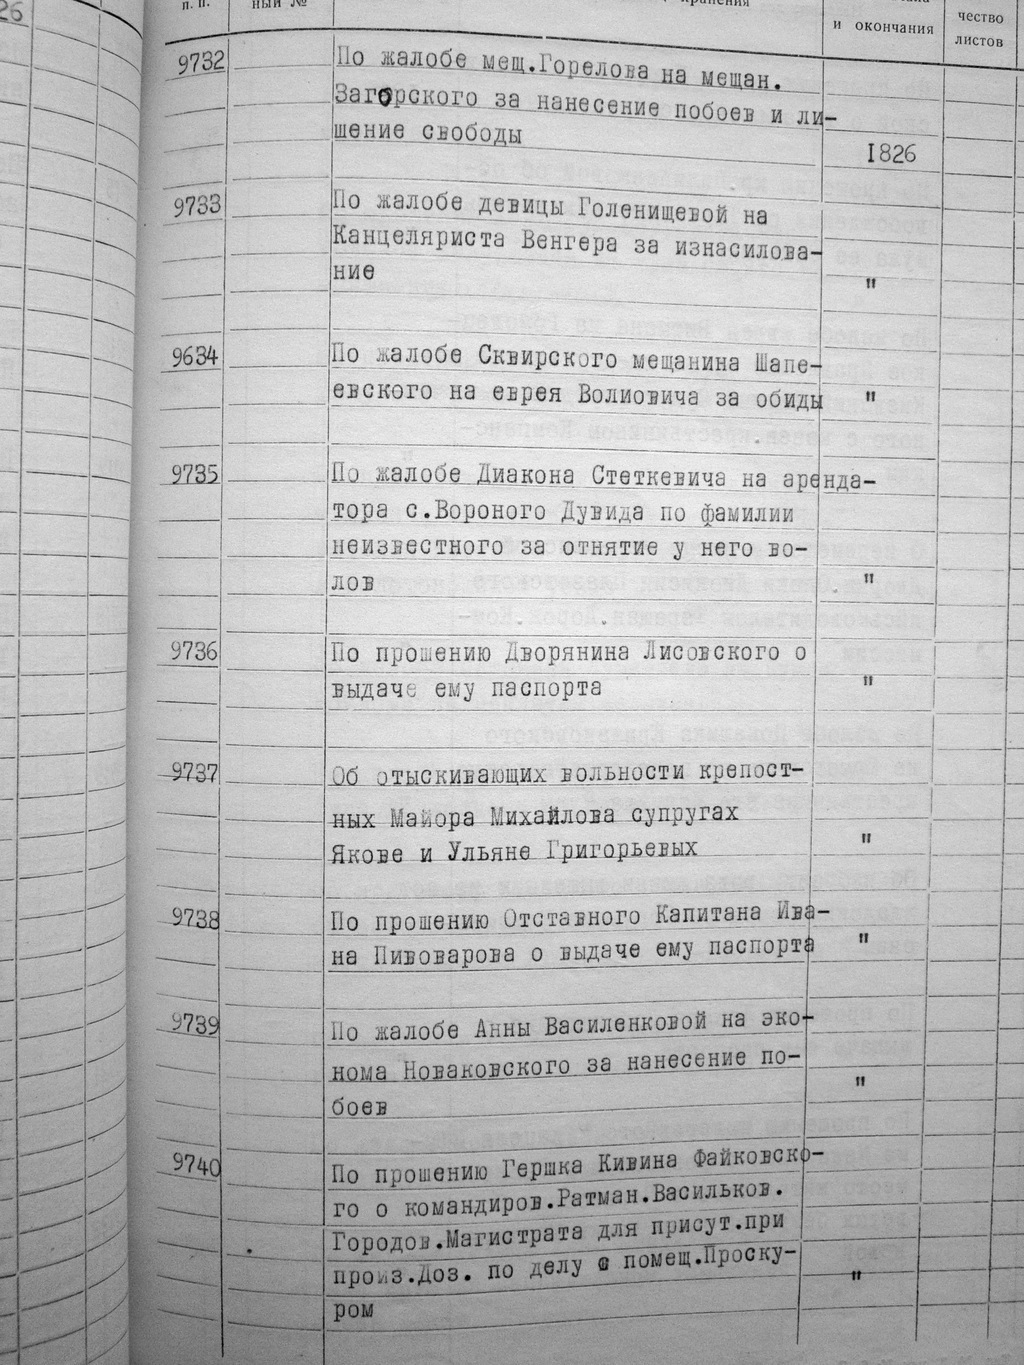 26
п. п.
ный №
хранения
и окончания
чество
листов
9732
По жалобе мещ.Горелова на мещан.
Загорского за нанесение побоев и ли-
шение свободы
1826
9733
По жалобе девицы Голенищевой на
Канцеляриста Венгера за изнасилова-
ние
"
9634
По жалобе Сквирского мещанина Шапе-
евского на еврея Волиовича за обиды "
9735
По жалобе Диакона Стеткевича на аренда-
тора с.Вороного Дувида по фамилии
неизвестного за отнятие у него во-
лов "
9736
По прошению Дворянина Лисовского о
выдаче ему паспорта "
9737
Об отыскивающих вольности крепост-
ных Майора Михайлова супругах
Якове и Ульяне Григорьевых "
9738
По прошению Отставного Капитана Ива-
на Пивоварова о выдаче ему паспорта "
9739
По жалобе Анны Василенковой на эко-
нома Новаковского за нанесение по-
боев "
9740
По прошению Гершка Кивина Файковско-
го о командиров.Ратман.Васильков.
Городов.Магистрата для присут.при
произ.Доз. по делу с помещ.Проску-
ром "